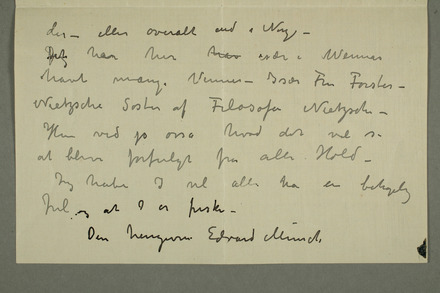 der – eller overalt end i Norge –
Jeg har her især i Weimar
havt mange Venner – Især Fru Förster –
Nietzsche Søster af Filosofen Nietzsche –
Hun ved jo også hvad det vil si
at blive forfulgt fra alle Hold –
Jeg håber I vil alle ha en behagelig
Jul og at I er friske –
Din hengivne Edvard Munch